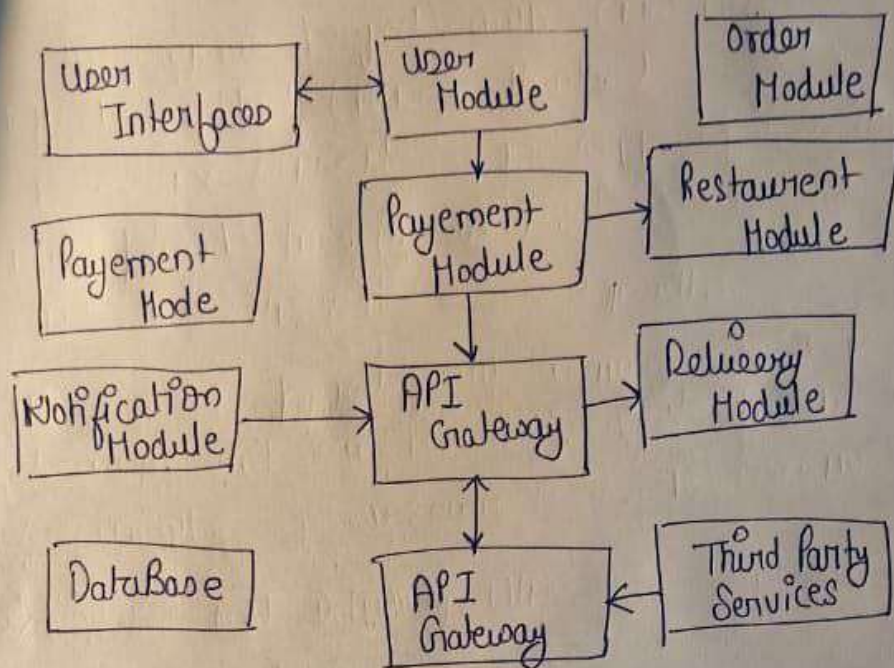 User
Interfaces
User
Module
Order
Module
Payement
Module
Restaurent
Module
Payement
Mode
Notification
Module
API
Gateway
Delivery
Module
DataBase
API
Gateway
Third Party
Services